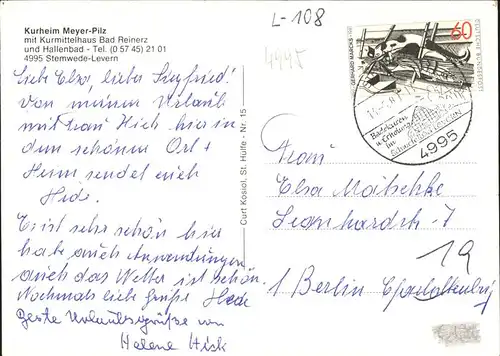 Kurheim Meyer-Pilz
mit Kurmittelhaus Bad Reinerz
und Hallenbad - Tel. (0 57 45) 21 01
4995 Stemwede-Levern
Liebe Elsa, lieber Siegfried!
Von meinem Urlaub
mit Frau Hick hier in
dem schönen Ort +
Heim sendet euch
Hede.
Es ist sehr schön hier
habe auch Anwendungen
auch das Wetter ist schön
Nochmals liebe Grüße Hede
Beste Urlaubsgrüße von
Helene Hick
Curt Kosiol, St. Hülfe - Nr. 15
L-108
4995
GERHARD MARCKS
60
DEUTSCHE BUNDESPOST
Badekuren
u. Erholung
im
4995
Frau
Elsa Matschke
Leonhardstr. 7
19
1 Berlin Charlottenburg